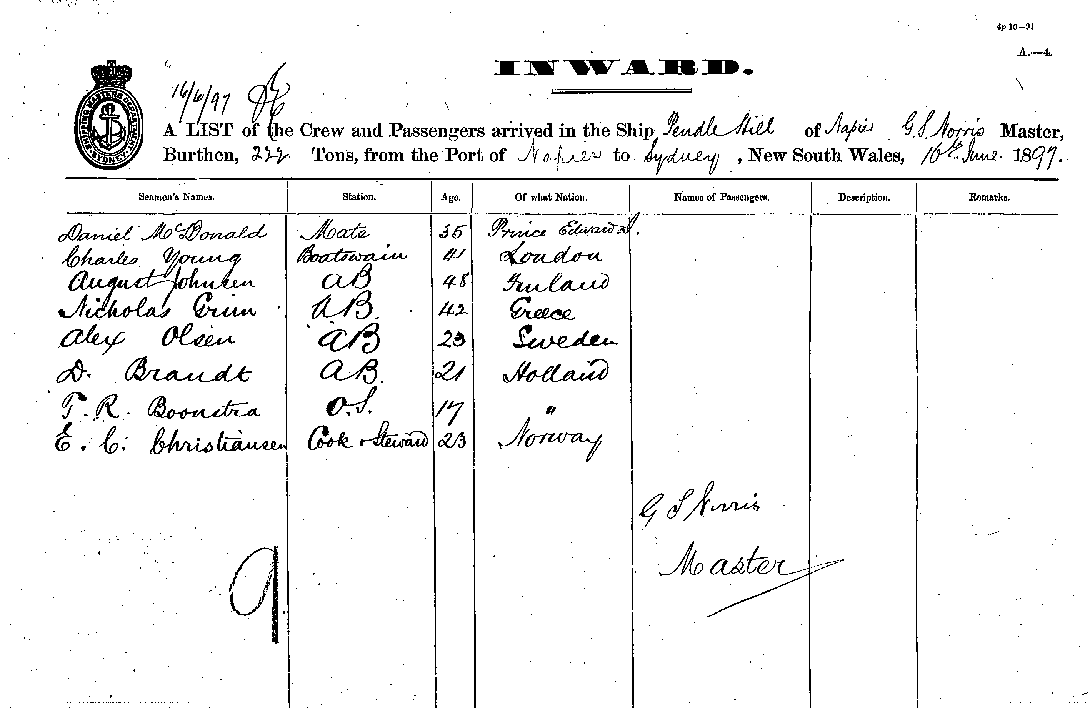 4p 10—91
A.—4.
INWARD.
16/6/97
A LIST of the Crew and Passengers arrived in the Ship Pendle Hill of Napier G. S. Norris Master,
Burthen, 222 Tons, from the Port of Napier to Sydney, New South Wales, 16th June 1897.
Seamen's Names. Station. Age. Of what Nation. Names of Passengers. Description. Remarks.
Daniel McDonald Mate 35 Prince Edward I.
Charles Young Boatswain 41 London
August Johnsen AB 48 Finland
Nicholas Grim AB. 42 Greece
Alex Olsen AB 23 Sweden
D. Brandt AB. 21 Holland
T. R. Boonstra O.S. 17 "
E. C. Christiansen Cook & Steward 23 Norway
G S Norris
Master
9